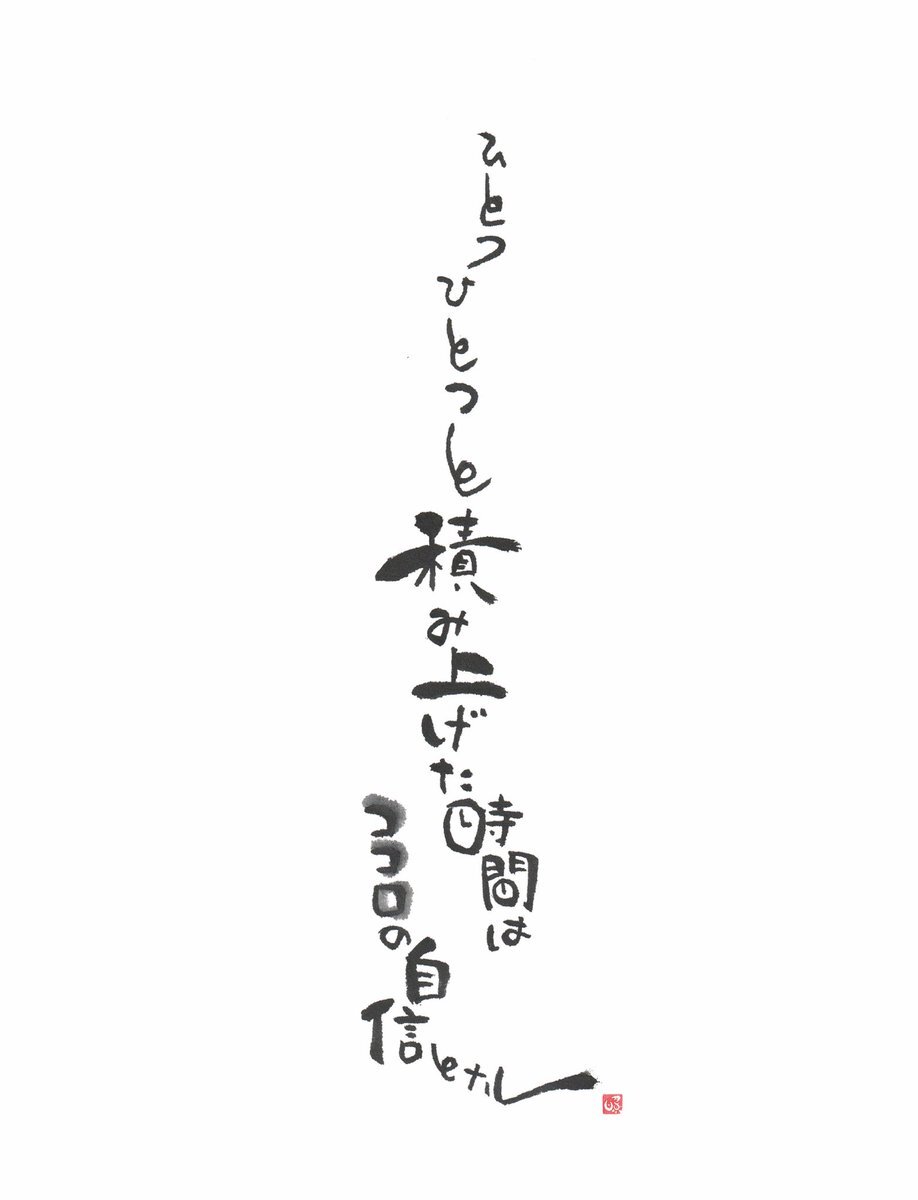 ひとつひとつと積み上げた時間は
ココロの自信とナル